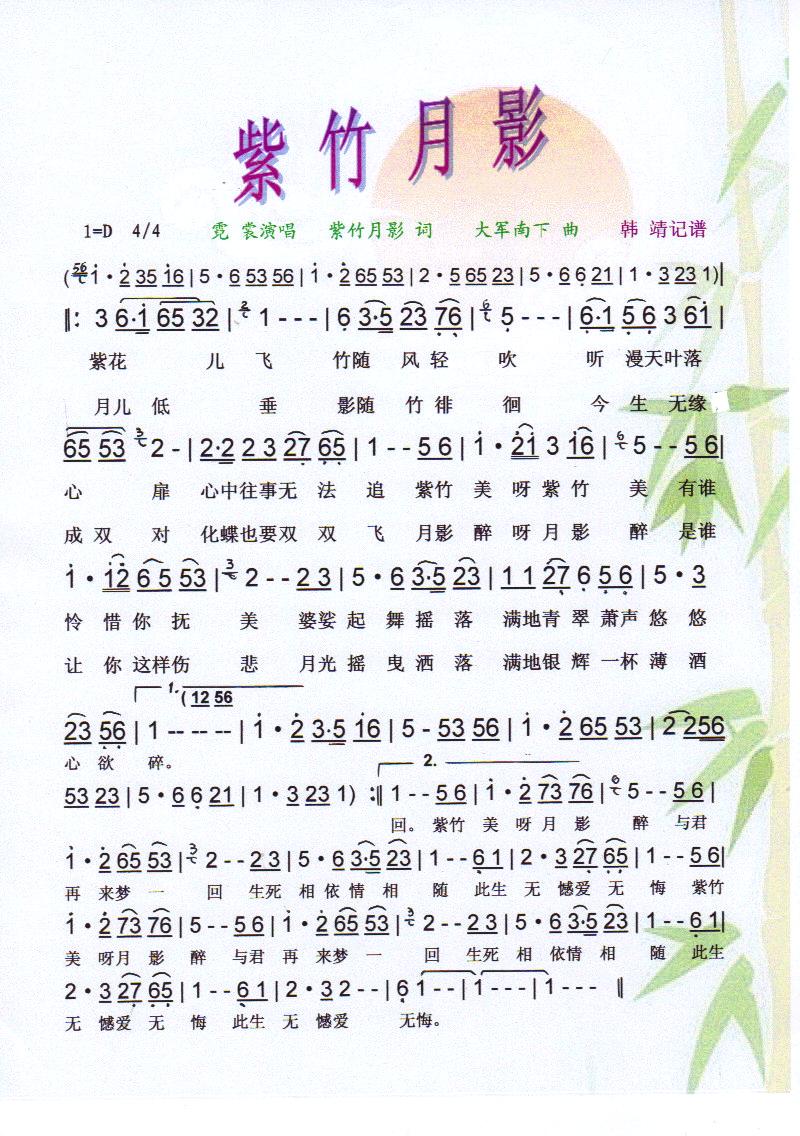 紫竹月影
1=D 4/4 霓 裳演唱 紫竹月影 词 大军南下 曲 韩 靖记谱
(56 1·2 35 16 | 5·6 53 56 | 1·2 65 53 | 2·5 65 23 | 5·6 6 21 | 1·3 23 1)|
‖: 3 6·1 65 32 | 2 1 - - - | 6 3·5 23 76 | 6 5 - - - | 6·1 5 6 3 61 |
紫花 儿 飞 竹随 风 轻 吹 听 漫天叶落
月儿 低 垂 影随 竹 徘 徊 今 生 无缘
65 53 3 2 - | 2·2 2 3 27 65 | 1 - - 5 6 | 1·21 3 16 | 6 5 - - 5 6|
心 扉 心中往事无 法 追 紫竹 美 呀紫 竹 美 有谁
成 双 对 化蝶也要双 双 飞 月影 醉 呀月 影 醉 是谁
1·12 6 5 53 | 3 2 - - 2 3 | 5·6 3·5 23 | 1 1 27 6 5 6 | 5·3
怜 惜你 抚 美 婆娑 起 舞 摇 落 满地青 翠 萧声 悠 悠
让 你 这样伤 悲 月光 摇 曳 洒 落 满地银 辉 一杯 薄 酒
1. (12 56
23 56 | 1 -- -- -- | 1·2 3·5 16 | 5 - 53 56 | 1·2 65 53 | 2 256
心 欲 碎。
2.
53 23 | 5·6 6 21 | 1·3 23 1 ) :‖ 1 - - 5 6 | 1·2 73 76 | 6 5 - - 5 6 |
回。 紫竹 美 呀 月 影 醉 与君
1·2 65 53 | 3 2 - - 2 3 | 5·6 3·5 23 | 1 - - 6 1 | 2·3 27 65 | 1 - - 5 6|
再 来梦 一 回 生死 相 依 情 相 随 此生 无 憾爱 无 悔 紫竹
1·2 73 76 | 5 - - 5 6 | 1·2 65 53 | 3 2 - - 2 3 | 5·6 3·5 23 | 1 - - 6 1|
美 呀月 影 醉 与君 再 来梦 一 回 生死 相 依情 相 随 此生
2·3 27 65 | 1 - - 6 1 | 2·3 2 - - 6 1 - - | 1 - - - | 1 - - - ‖
无 憾爱 无 悔 此生 无 憾爱 无悔。